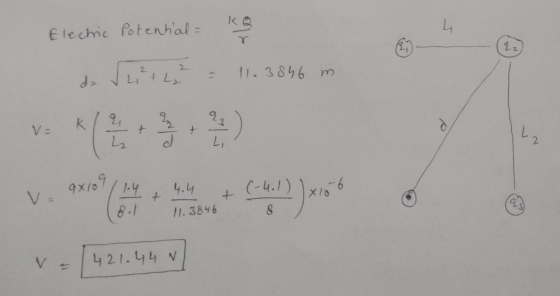 Electric Potential = kQ/r
d = √(L₁² + L₂²) = 11.3846 m
V = K (q₁/L₂ + q₂/d + q₃/L₁)
V = 9×10⁹ (1.4/8.1 + 4.4/11.3846 + (-4.1)/8) ×10⁻⁶
V = 421.44 V
L₁
q₁
q₂
d
L₂
q₃